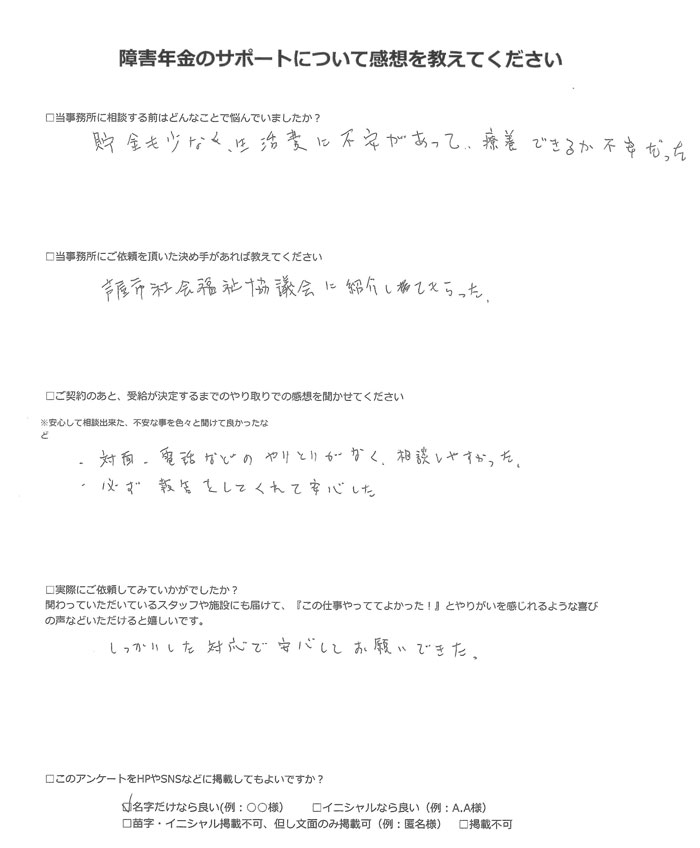 障害年金のサポートについて感想を教えてください
□当事務所に相談する前はどんなことで悩んでいましたか？
貯金も少なく、生活費に不安があって、療養できるか不安だった
□当事務所にご依頼を頂いた決め手があれば教えてください
芦屋市社会福祉協議会に紹介してもらった。
□ご契約のあと、受給が決定するまでのやり取りでの感想を聞かせてください
※安心して相談出来た、不安な事を色々と聞けて良かったな
ど
・対面・電話などのやりとりがなく、相談しやすかった。
・必ず報告をしてくれて安心した
□実際にご依頼してみていかがでしたか？
関わっていただいているスタッフや施設にも届けて、『この仕事やっててよかった！』とやりがいを感じれるような喜び
の声などいただけると嬉しいです。
しっかりした対応で安心してお願いできた。
□このアンケートをHPやSNSなどに掲載してもよいですか？
☑名字だけなら良い(例：○○様） □イニシャルなら良い（例：A.A様）
□苗字・イニシャル掲載不可、但し文面のみ掲載可（例：匿名様） □掲載不可